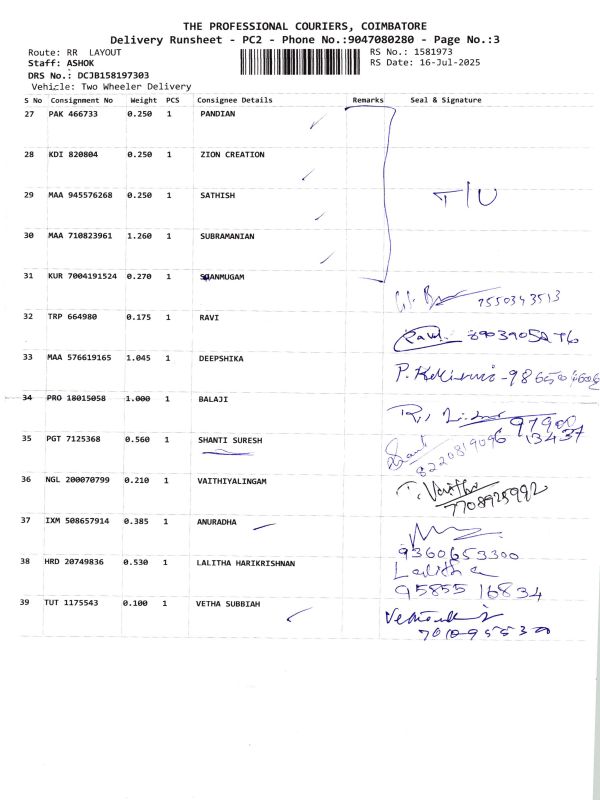 THE PROFESSIONAL COURIERS, COIMBATORE
Delivery Runsheet - PC2 - Phone No.:9047080280 - Page No.:3
Route: RR LAYOUT
RS No.: 1581973
Staff: ASHOK
RS Date: 16-Jul-2025
DRS No.: DCJB158197303
Vehicle: Two Wheeler Delivery
S No Consignment No Weight PCS Consignee Details Remarks Seal & Signature
27 PAK 466733 0.250 1 PANDIAN
28 KDI 820804 0.250 1 ZION CREATION
29 MAA 945576268 0.250 1 SATHISH
T/U
30 MAA 710823961 1.260 1 SUBRAMANIAN
31 KUR 7004191524 0.270 1 SHANMUGAM
7550343513
32 TRP 664980 0.175 1 RAVI
Ravi
33 MAA 576619165 1.045 1 DEEPSHIKA
34 PRO 18015058 1.000 1 BALAJI
97900
13437
35 PGT 7125368 0.560 1 SHANTI SURESH
8220819096
36 NGL 200070799 0.210 1 VAITHIYALINGAM
7708925992
37 IXM 508657914 0.385 1 ANURADHA
9360653300
38 HRD 20749836 0.530 1 LALITHA HARIKRISHNAN
Lalitha
95855 16834
39 TUT 1175543 0.100 1 VETHA SUBBIAH